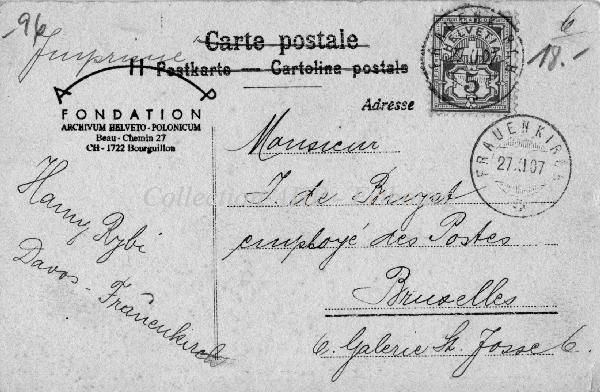 -96
Imprimé
Carte postale
Postkarte — Cartolina postale
Adresse
6
18.-
HELVETIA
5
A P
FONDATION
ARCHIVUM HELVETO-POLONICUM
Beau - Chemin 27
CH - 1722 Bourguillon
FRAUENKIRCH
27.XI.07
Monsieur
J. de
employé des Postes
Bruxelles
6. Galerie St. Josse 6.
Hamy Rybi
Davos - Frauenkirch
Collection